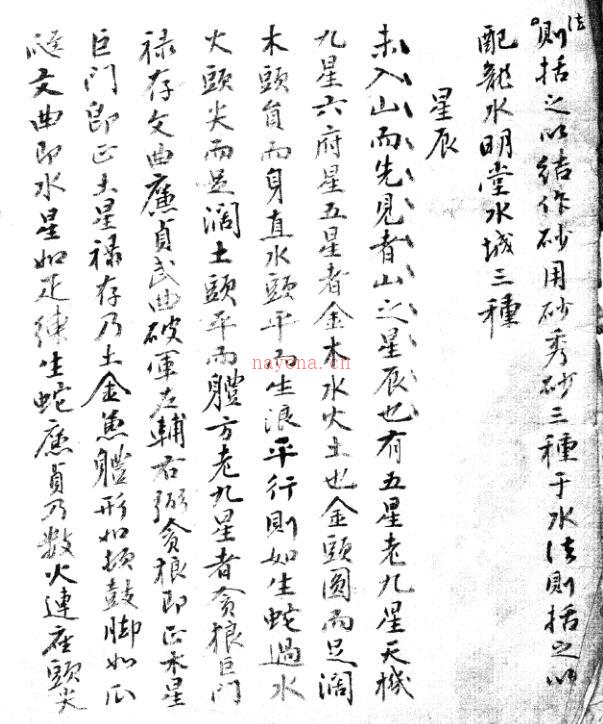 法
則括之以結作砂用砂秀砂三種于水法則括之以
配龍水明堂水城三種
星辰
未入山而先見者山之星辰也有五星老九星天機
九星六府星五星者金木水火土也金頭圓而足濶
木頭員而身直水頭平而生浪平行則如生蛇過水
火頭尖而足濶土頭平而體方老九星者貪狼巨門
祿存文曲廉貞武曲破軍左輔右弼貪狼即正木星
巨門即正土星祿存乃土金兼體形如頓鼓脚如瓜
文曲即水星如疋練生蛇廉貞乃数火連座頭尖
nayona.cn